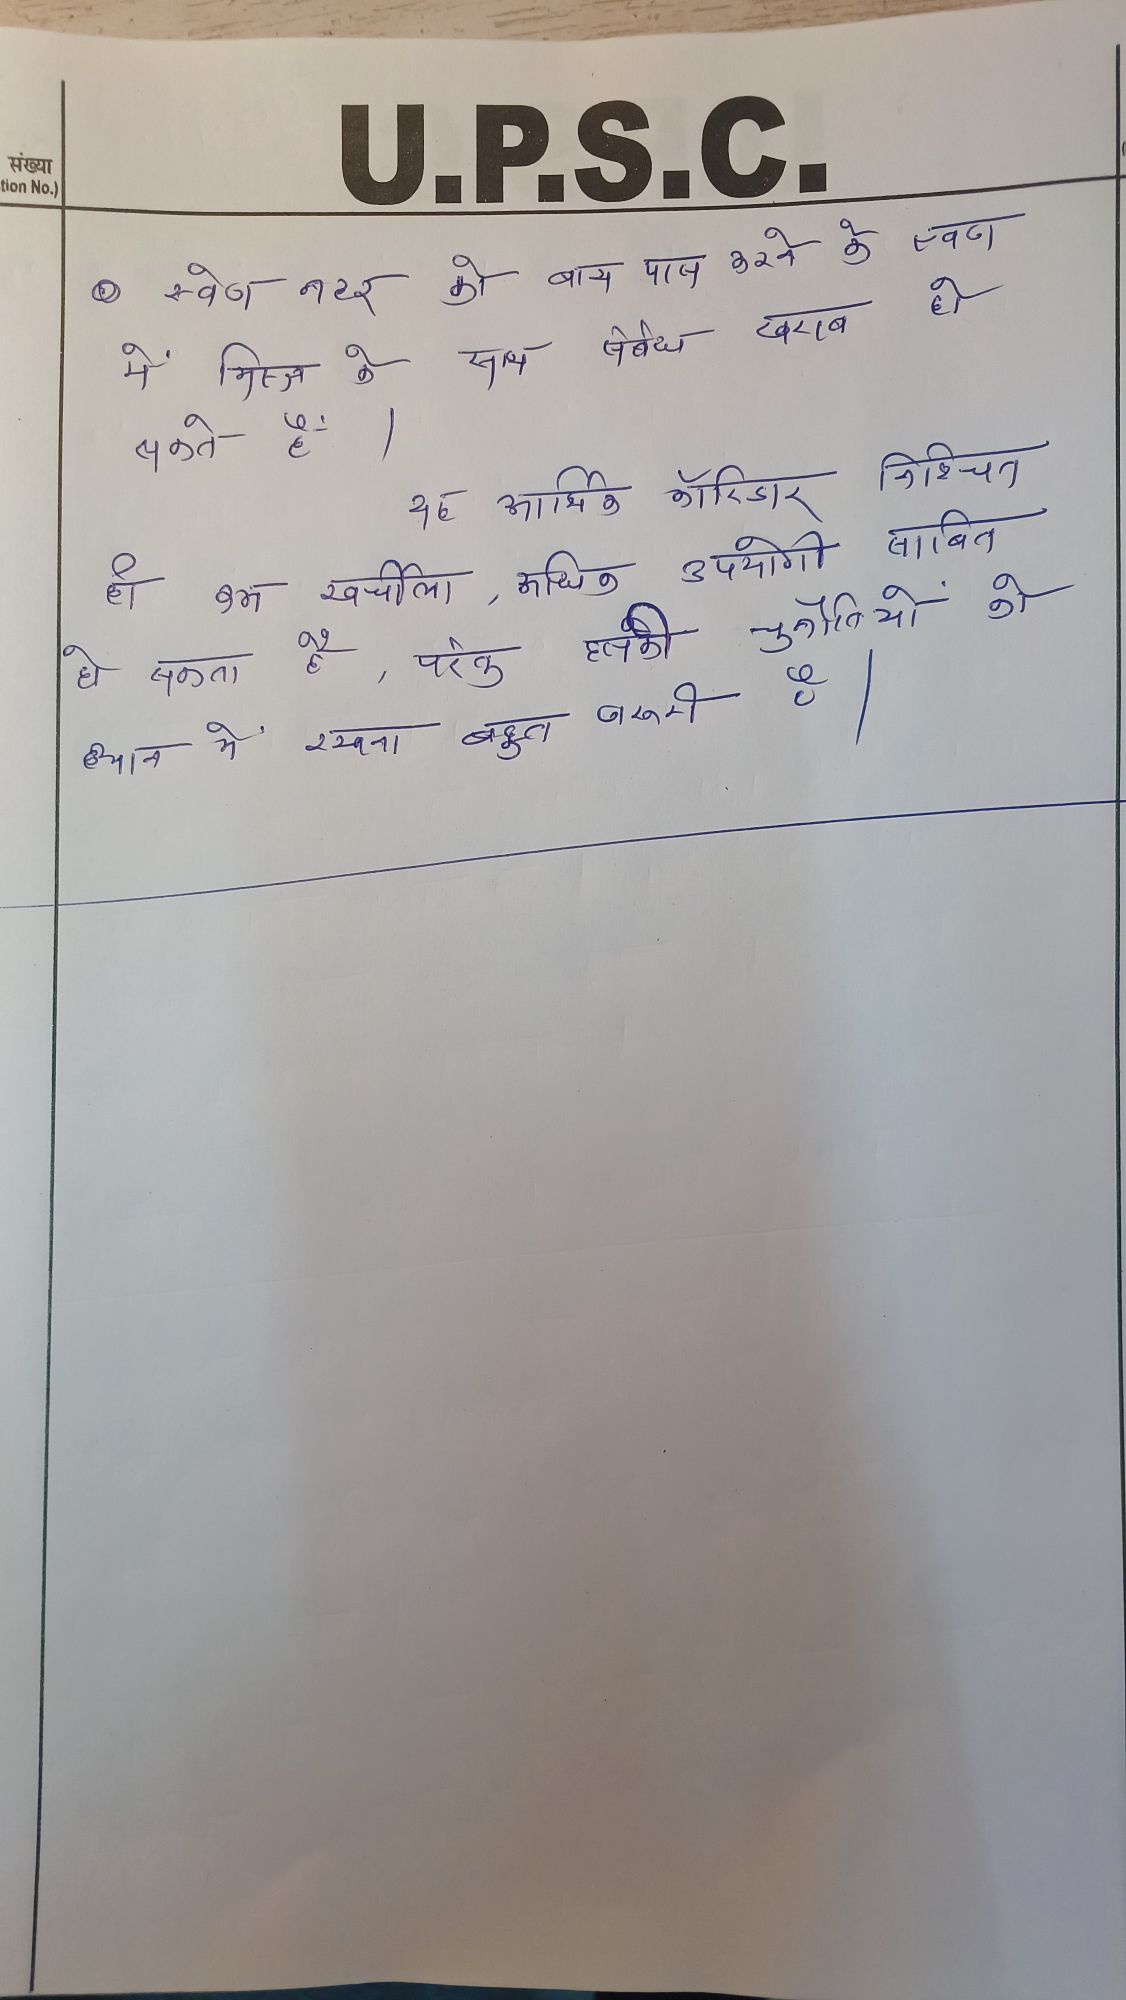 U.P.S.C.
संख्या
tion No.)
स्वेज नहर को बाय पास करने के
में मिस्र के साथ संबंध खराब हो
सकते हैं ।
यह आर्थिक कॉरिडार निश्चित
ही कम खर्चीला , अधिक उपयोगी साबित
हो सकता है , परंतु इसकी चुनौतियों को
ध्यान में रखना बहुत जरूरी है ।